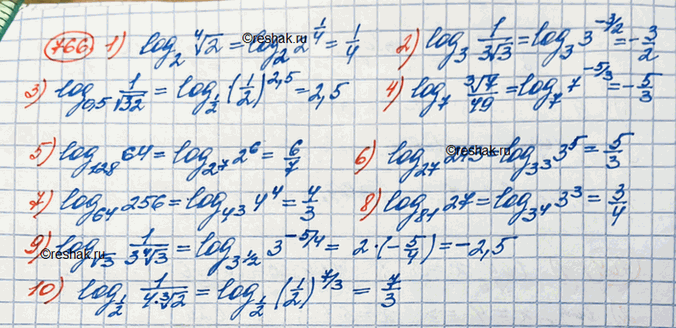 766. 1) log₂ ⁴√2 = log₂ 2^(1/4) = 1/4 2) log₃ 1/(3√3) = log₃ 3^(-3/2) = -3/2
3) log₀,₅ 1/√32 = log_(1/2) (1/2)^(2,5) = 2,5 4) log₇ ³√7/49 = log₇ 7^(-5/3) = -5/3
5) log₁₂₈ 64 = log_(2^7) 2^6 = 6/7 6) log₂₇ 243 = log_(3^3) 3^5 = 5/3
7) log₆₄ 256 = log_(4^3) 4^4 = 4/3 8) log₈₁ 27 = log_(3^4) 3^3 = 3/4
9) log_(√3) 1/(3⁴√3) = log_(3^(1/2)) 3^(-5/4) = 2·(-5/4) = -2,5
10) log_(1/2) 1/(4·³√2) = log_(1/2) (1/2)^(7/3) = 7/3
©reshak.ru
©reshak.ru
©reshak.ru
©reshak.ru
©reshak.ru